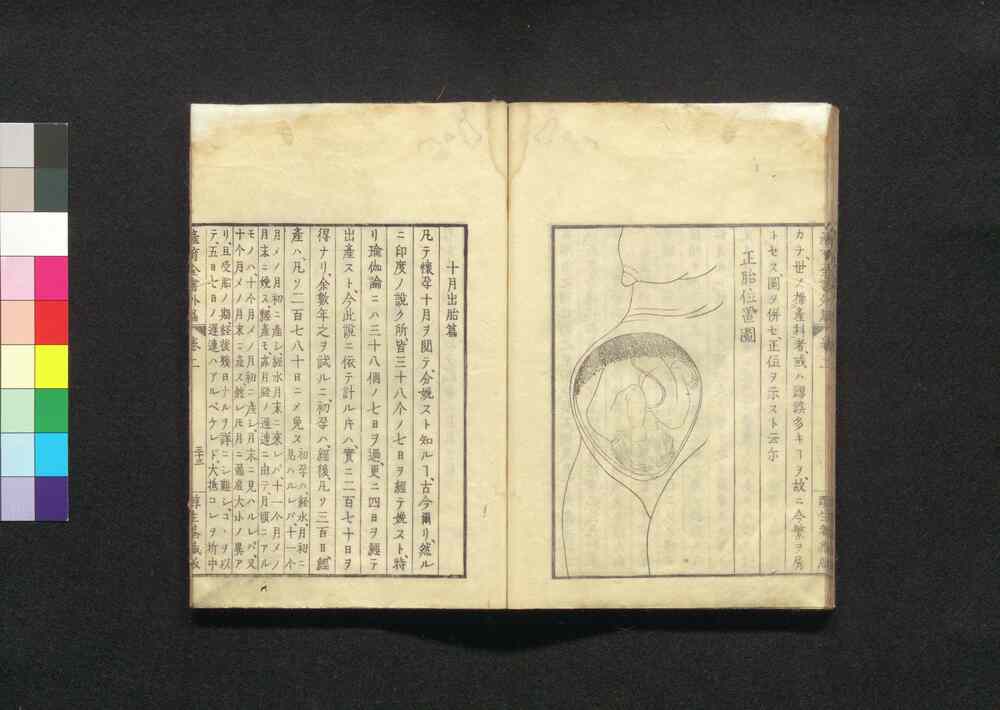 カラ、世ノ撈産科者、或ハ謬誤多キヿヲ、故ニ今繁ヲ厭
トセス、圖ヲ併セ正位ヲ示スト云尓
正胎位置圖
十月出胎篇
凡テ懷孕十月ヲ閲テ、分娩スト知ルヿ、古今爾リ、然ル
ニ印度ノ說ク所、皆三十八个ノ七日ヲ經テ娩スト、特
リ瑜伽論ニハ三十八個ノ七日ヲ過、更ニ四日ヲ經テ
出產スト、今此說ニ依テ計ルキハ、實ニ二百七十日ヲ
得ナリ、余數年之ヲ試ルニ、初孕ハ、經後、凡ソ三百日、經
產ハ、凡ソ二百七八十日ニメ免ス
初孕ハ、經水月初ニ
易ハルレバ、十一个
月メノ月初ニ產シ、經水月末ニ來レバ、十一个月メノ
月末ニ娩ス、經產モ、亦月經ノ遲速ニ由テ、月頃ニアル
モノハ、十个月メノ月初ニ產シ、月末ニ見ハルレバ、又
十个月メノ月末ニ產ス、然レ𪜈月ニ
大小ノ異ア
リ、且受胎ノ期、經後幾日ナルヲ詳ニシ難シ、コヽヲ以
テ、五日七日ノ遲速ハアルベケレド、大抵コレヲ折中
產育全書外篇
卷二